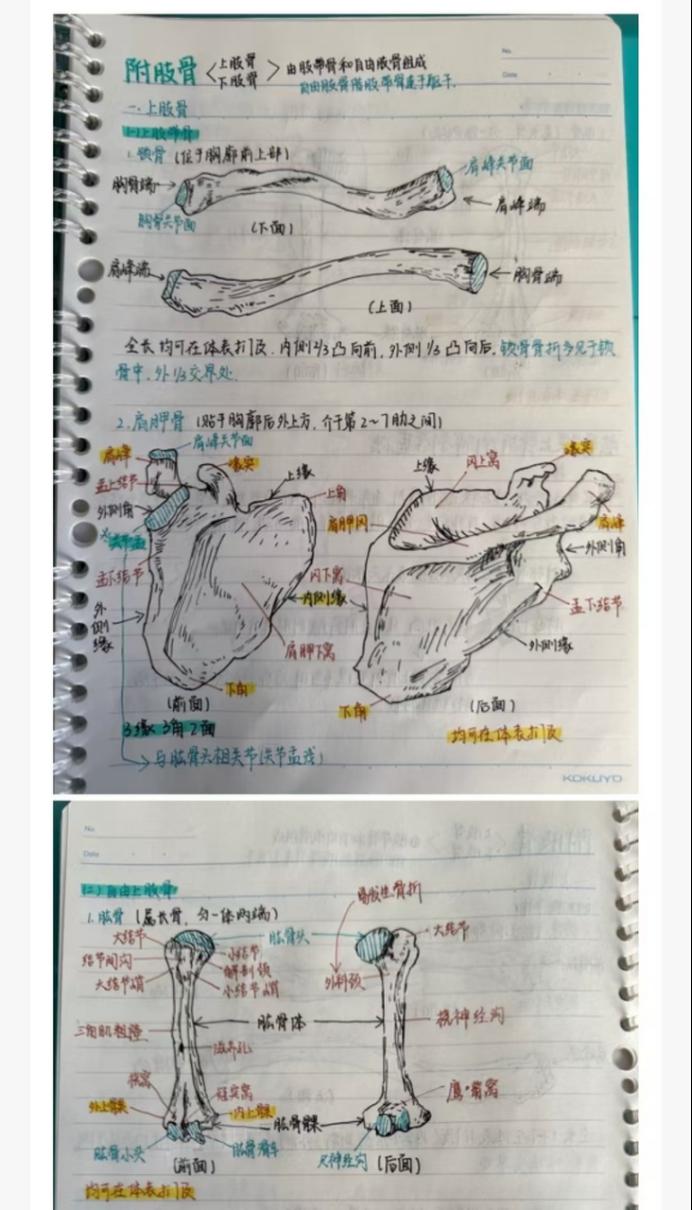 No.
Date
附肢骨 < 上肢骨 下肢骨 > 由肢带骨和自由肢骨组成
自由肢骨借肢带骨连于躯干.
一.上肢骨
(一)上肢带骨
1.锁骨(位于胸廓前上部)
肩峰关节面
胸骨端
肩峰端
胸骨关节面
(下面)
肩峰端
胸骨端
(上面)
全长均可在体表扪及.内侧2/3凸向前,外侧1/3凸向后.锁骨骨折多见于锁
骨中.外1/3交界处.
2.肩胛骨(贴于胸廓后外上方,介于第2~7肋之间)
肩峰
肩峰关节面
喙突
上缘
上角
盂上结节
外侧角
关节盂
盂下结节
外侧缘
内侧缘
肩胛下窝
下角
(前面)
上缘
冈上窝
喙突
肩胛冈
肩峰
外侧角
冈下窝
盂下结节
外侧缘
下角
(后面)
3缘3角2面
均可在体表扪及
与肱骨头相关节(关节盂浅)
KOKUYO
No.
Date
(二)自由上肢骨
1.肱骨(属长骨,分一体两端)
易发生骨折
大结节
肱骨头
大结节
结节间沟
小结节
解剖颈
大结节嵴
小结节嵴
外科颈
肱骨体
桡神经沟
三角肌粗隆
滋养孔
桡窝
冠突窝
鹰嘴窝
外上髁
内上髁
肱骨髁
肱骨小头
肱骨滑车
尺神经沟
(前面)
(后面)
均可在体表扪及